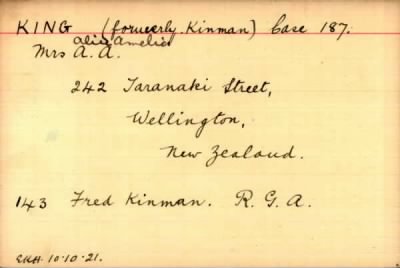 KING (formerly Kinman) Case 187.
Alice Amelia
Mrs A. A.
242 Taranaki Street,
Wellington,
New Zealand.
143 Fred Kinman. R. G. A.
EKH. 10.10.21.